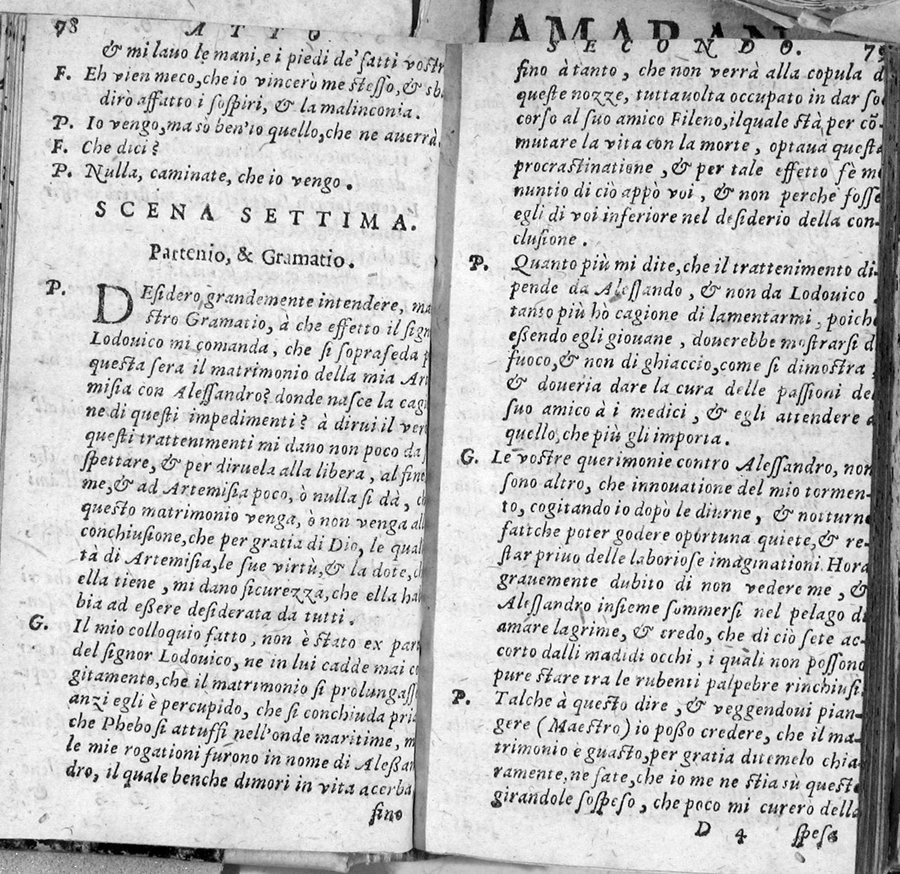 78 ATTO
& mi lavo le mani, e i piedi de' fatti vostr
F. Eh vien meco, che io vincerò me stesso, & sb
diro affatto i sospiri, & la malinconia.
P. Io vengo, ma sò ben'io quello, che ne averrà.
F. Che dici?
P. Nulla, caminate, che io vengo.
SCENA SETTIMA.
Partenio, & Gramatio.
P. DEsidero grandemente intendere, ma
stro Gramatio, à che effetto il sign
Lodouico mi comanda, che si sopraseda p
questa sera il matrimonio della mia Ar
misia con Alessandro? donde nasce la cagi
ne di questi impedimenti? à dirui il ver
questi trattenimenti mi dano non poco da
spettare, & per diruela alla libera, al fine
me, & ad Artemisia poco, ò nulla si dà, ch
questo matrimonio venga, ò non venga all
conchiusione, che per gratia di Dio, le qual
tà di Artemisia, le sue virtù, & la dote, ch
ella tiene, mi dano sicurezza, che ella hab
bia ad essere desiderata da tutti.
G. Il mio colloquio fatto, non è stato ex part
del signor Lodouico, ne in lui cadde mai co
gitamento, che il matrimonio si prolungass
anzi egli è percupido, che si conchiuda pria
che Phebo si attuffi nell'onde maritime, m
le mie rogationi furono in nome di Alessan
dro, il quale benche dimori in vita acerba
fino
AMARAN
SECONDO. 79
fino à tanto, che non verrà alla copula d
queste nozze, tuttauolta occupato in dar so
corso al suo amico Fileno, ilquale stà per cō
mutare la vita con la morte, optaua questa
procrastinatione, & per tale effetto fè me
nuntio di ciò appò voi, & non perche fosse
egli di voi inferiore nel desiderio della con
clusione.
P. Quanto più mi dite, che il trattenimento di-
pende da Alessando, & non da Lodouico
tanto più ho cagione di lamentarmi, poiche
essendo egli giouane, douerebbe mostrarsi d
fuoco, & non di ghiaccio, come si dimostra
& doueria dare la cura delle passioni del
suo amico à i medici, & egli attendere a
quello, che più gli importa.
G. Le vostre querimonie contro Alessandro, non
sono altro, che innouatione del mio tormen-
to, cogitando io dopò le diurne, & notturne
fattche poter godere oportuna quiete, & re-
star priuo delle laboriose imaginationi. Hora
grauemente dubito di non vedere me, &
Alessandro insieme sommersi nel pelago di
amare lagrime, & credo, che di ciò sete ac-
corto dalli madidi occhi, i quali non possono
pure stare tra le rubenti palpebre rinchiusi.
P. Talche à questo dire, & veggendoui pian-
gere (Maestro) io posso credere, che il ma-
trimonio è guasto, per gratia ditemelo chia-
ramente, ne fate, che io me ne stia sù queste
girandole sospeso, che poco mi curerò della
D 4 spesa